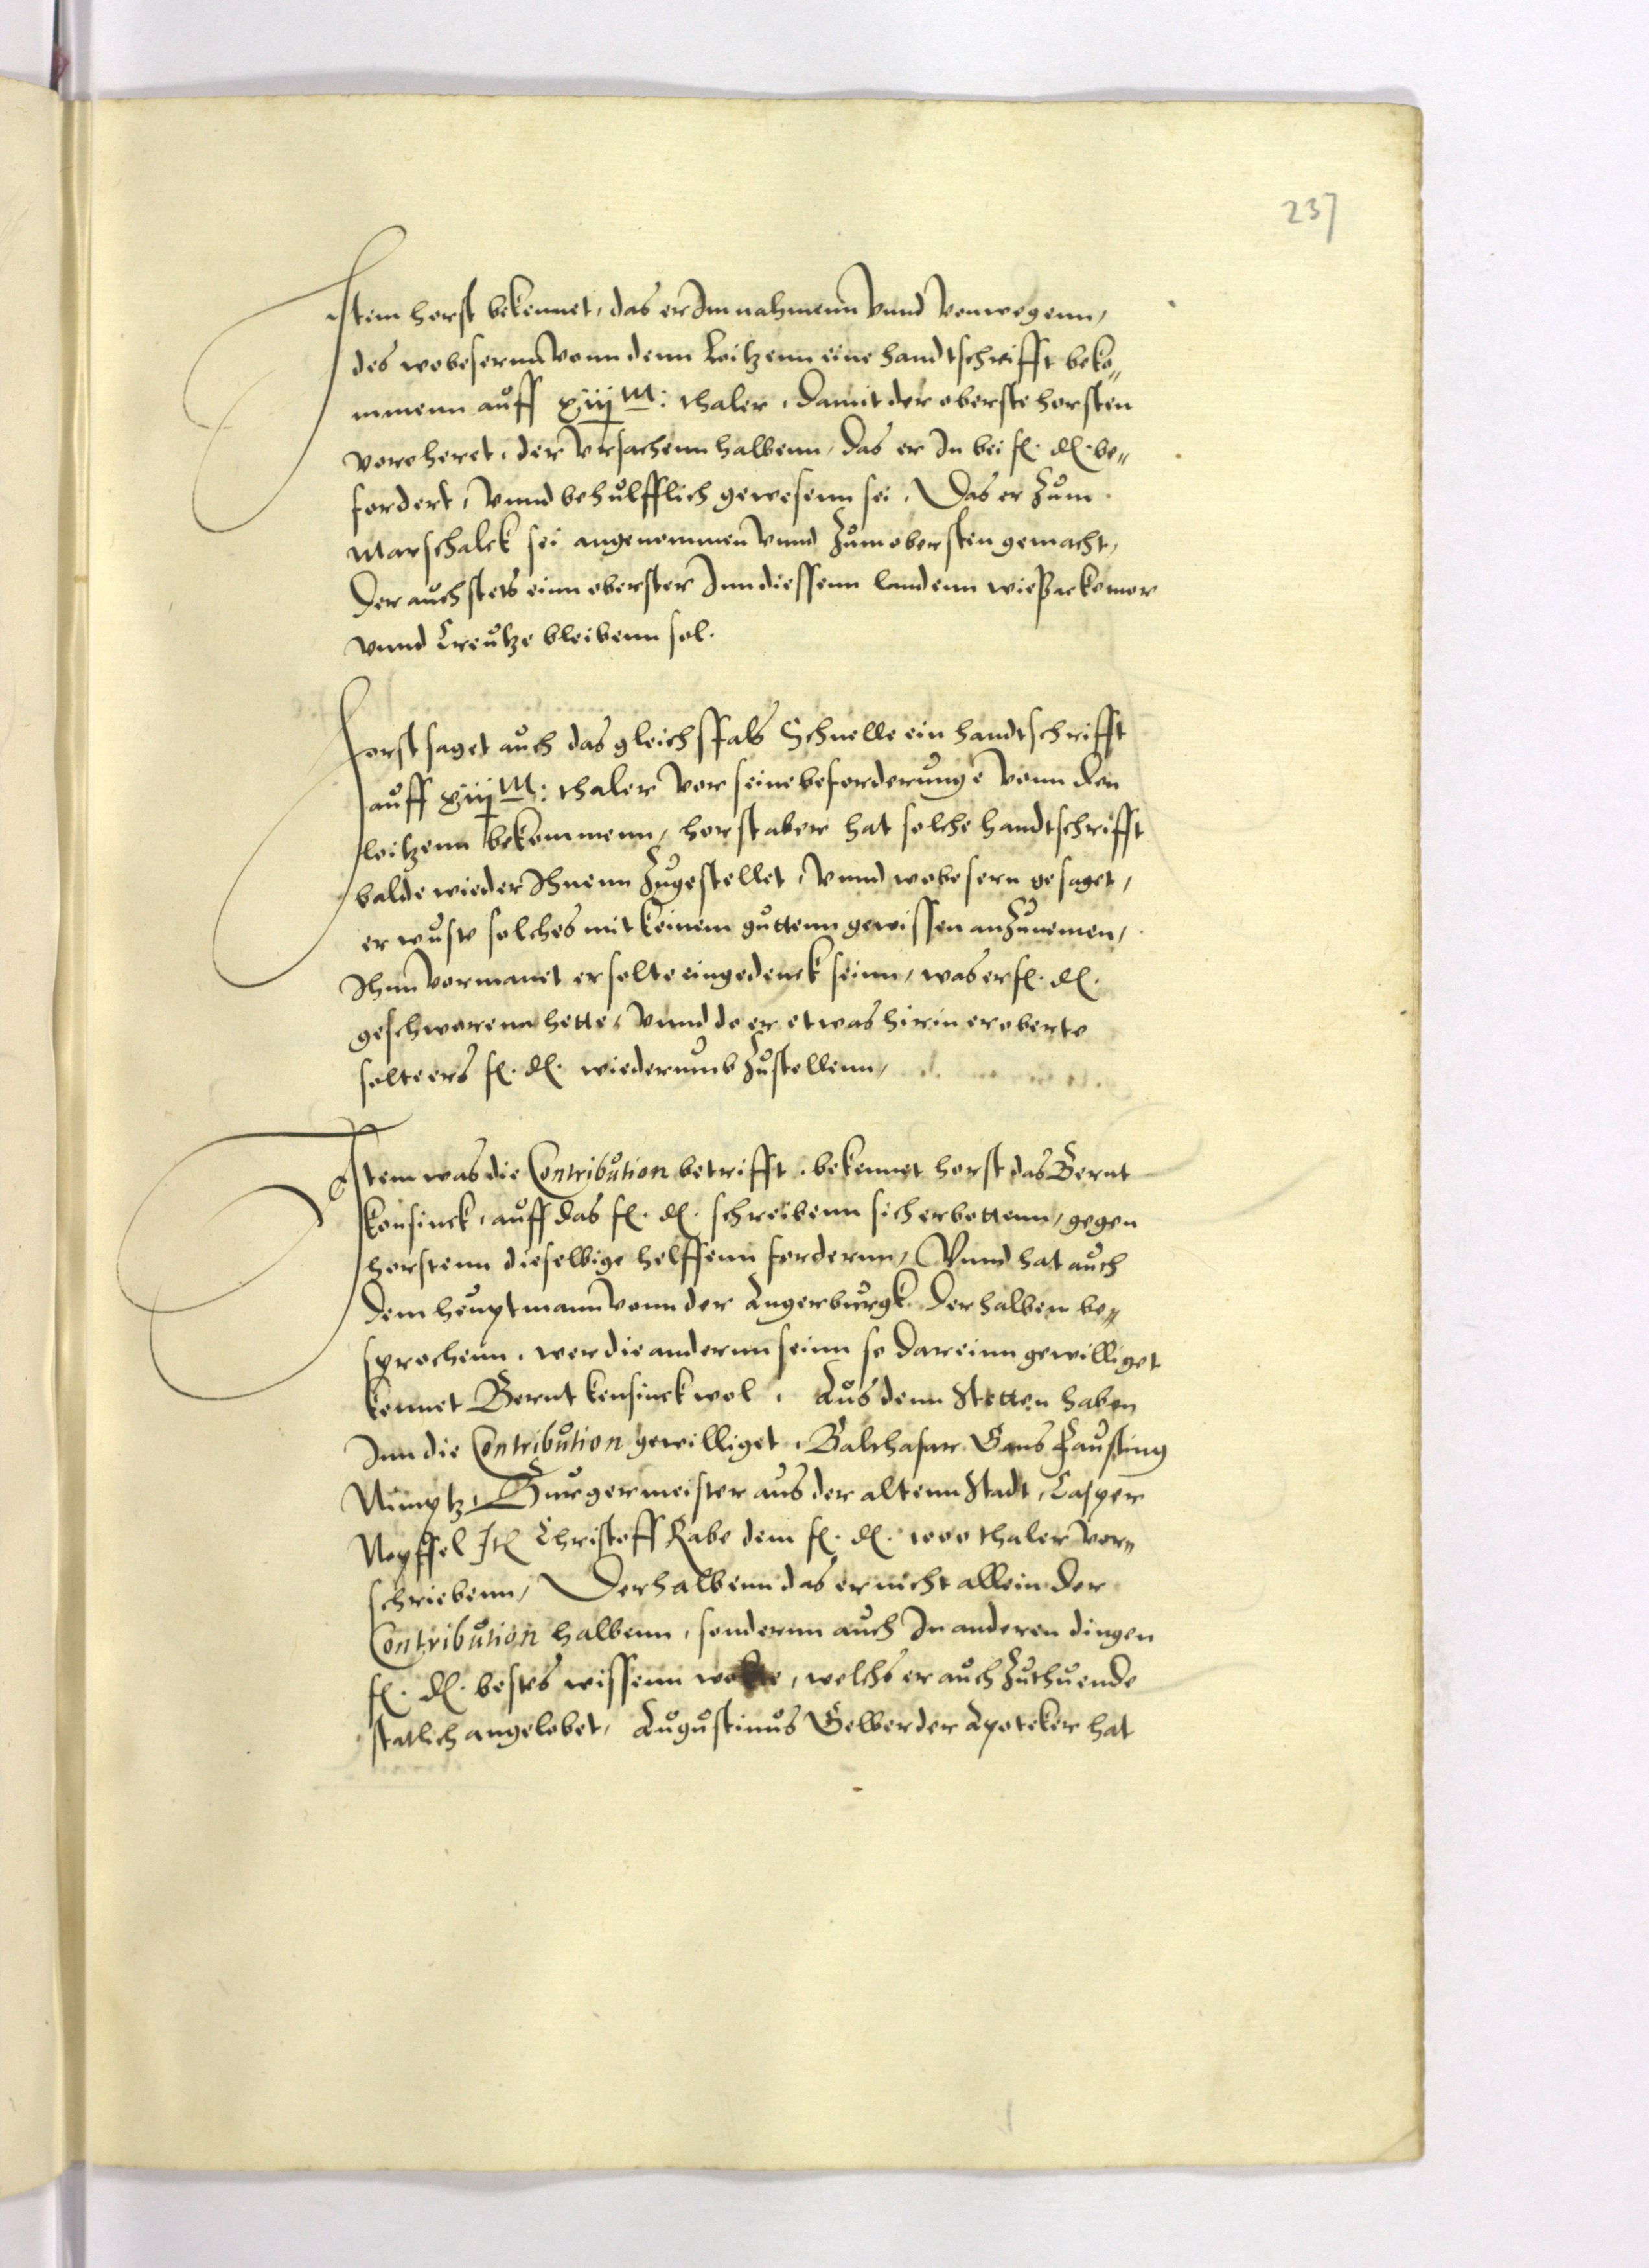 237
Item horst bekennet, das er Im nahmenn vnnd vonwegenn,
des wobesernn vonn denn Loitzenn eine handtschrifft beko„
mmenn auff xiiij M: thaler, damit der oberste horsten
voreheret, der vrsachenn halbenn, das er In bei f. d. be„
fordert, vnnd behulfflich gewesenn sei, Das er Zum
Marschalck sei angenommen vnnd Zum obersten gemacht,
Der auch stets einn oberster Inn diessenn landenn wie Packomor
vnnd Creutze bleibenn sol.
Horst saget auch das gleichsfals Schnelle ein handtschrifft
auff xiiij M: thaler vor seine beforderunge vonn den
loitzenn bekommenn, horst aber hat solche handtschrifft
balde wieder Ihnenn Zugestellet, vnnd wobesern gesaget,
er wuste solches mit keinem guttenn gewissen anzunemen,
Ihnn vormanet er solte eingedenck seinn, was er f. d.
geschworenn hette, vnnd do er etwas hirin eroberte
solte ers f. d. wiederumb Zustellenn,
Item was die Contribution betrifft, bekennet horst das Bernt
konsinck, auff das f. d. schreibenn sich erbottenn, gegen
horstenn dieselbige helffenn fordernn, Vnnd hat auch
dem heuptmann vonn der Angerburgk derhalben be„
sprochenn, wer die andernn seinn so dareinn gewilliget
kennet Bernt kensinck wol, Aus denn Stetten haben
Inn die Contribution gewilliget, Balthasar Gans Fausting
Nimptz, Burgermeister aus der altenn Stadt, Casper
Nopffel It Christoff Rabe dem f. d. 1000 thaler vor„
schriebenn, Derhalbenn das er nicht allein der
Contribution halbenn, sondernn auch In anderen dingen
f. d. bestes wissenn wolte, welchs er auch Zuthuende
statlich angelobet, Augustinus Gelber der Apoteker hat